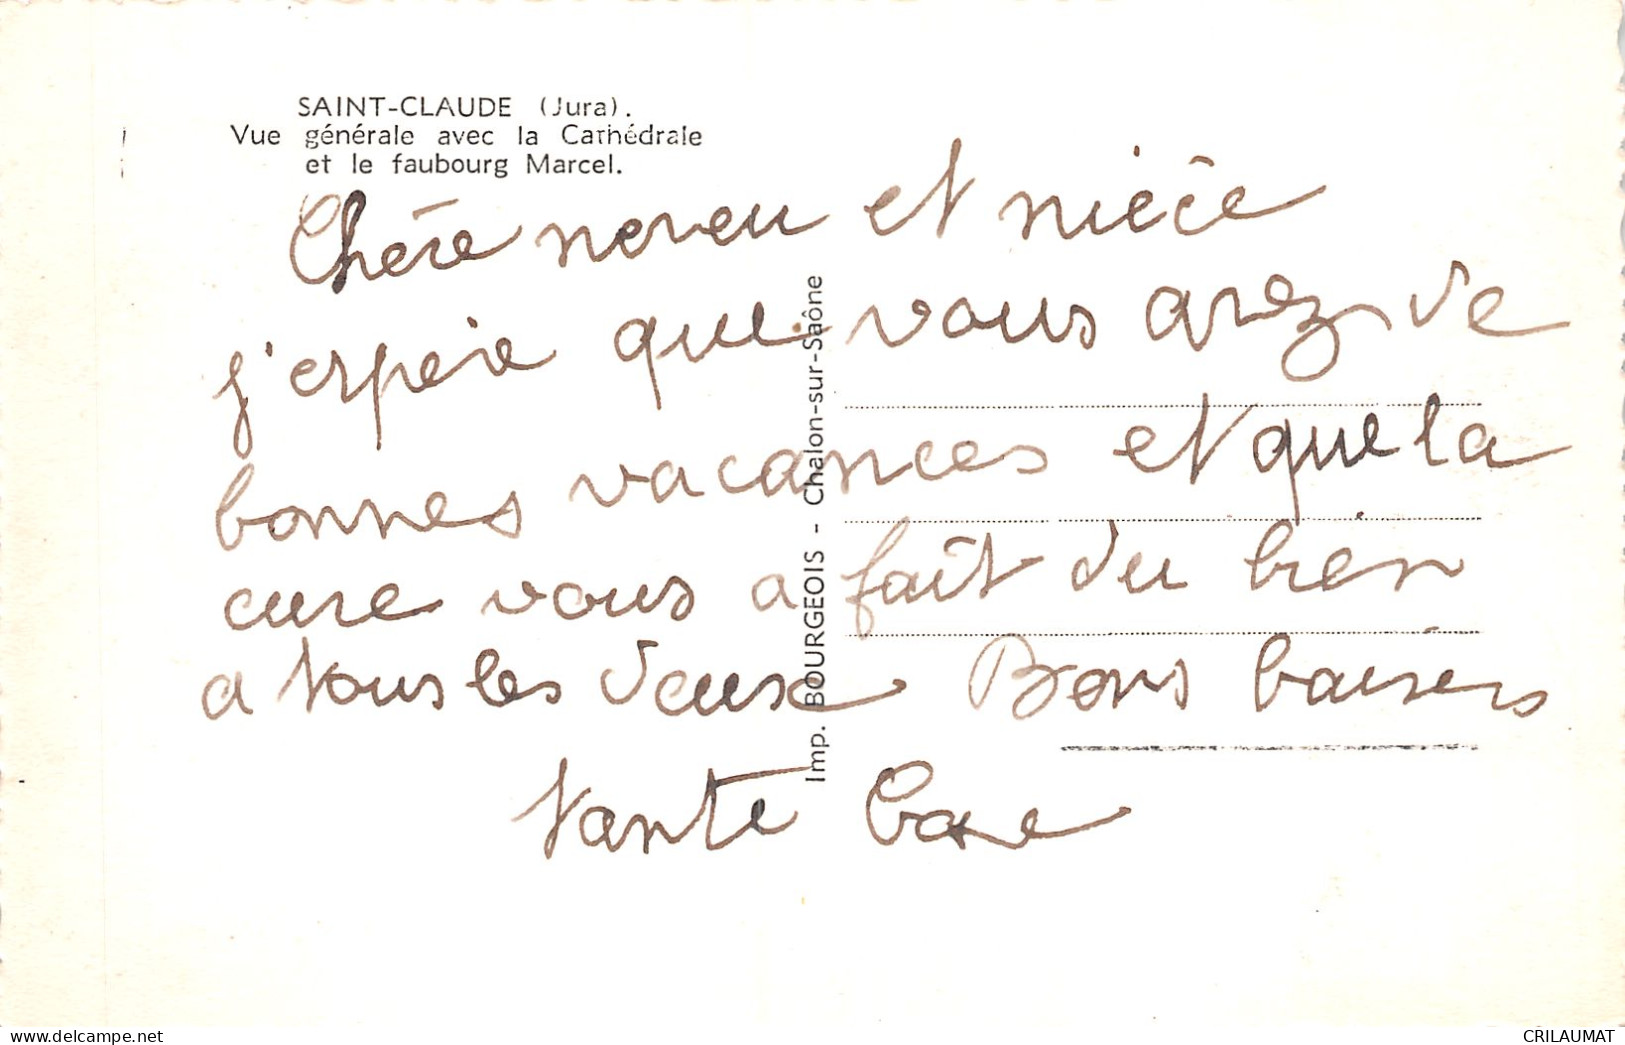 SAINT-CLAUDE (Jura).
Vue générale avec la Cathédrale
et le faubourg Marcel.
Chère neveu et nièce
j'espère que vous avez de
bonnes vacances et que la
cure vous a fait du bien
a tous les deux Bons baisers
tante
Imp. BOURGEOIS - Chalon-sur-Saône
www.delcampe.net
CRILAUMAT